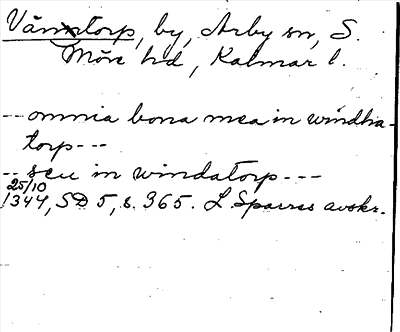 Väntorp, by, Arby sn, S.
Möre hd, Kalmar l.
-- omnia bona mea in windha-
torp ---
-- seu in windatorp ---
25/10
1344, SD 5, s. 365. L. Sparres avskr.